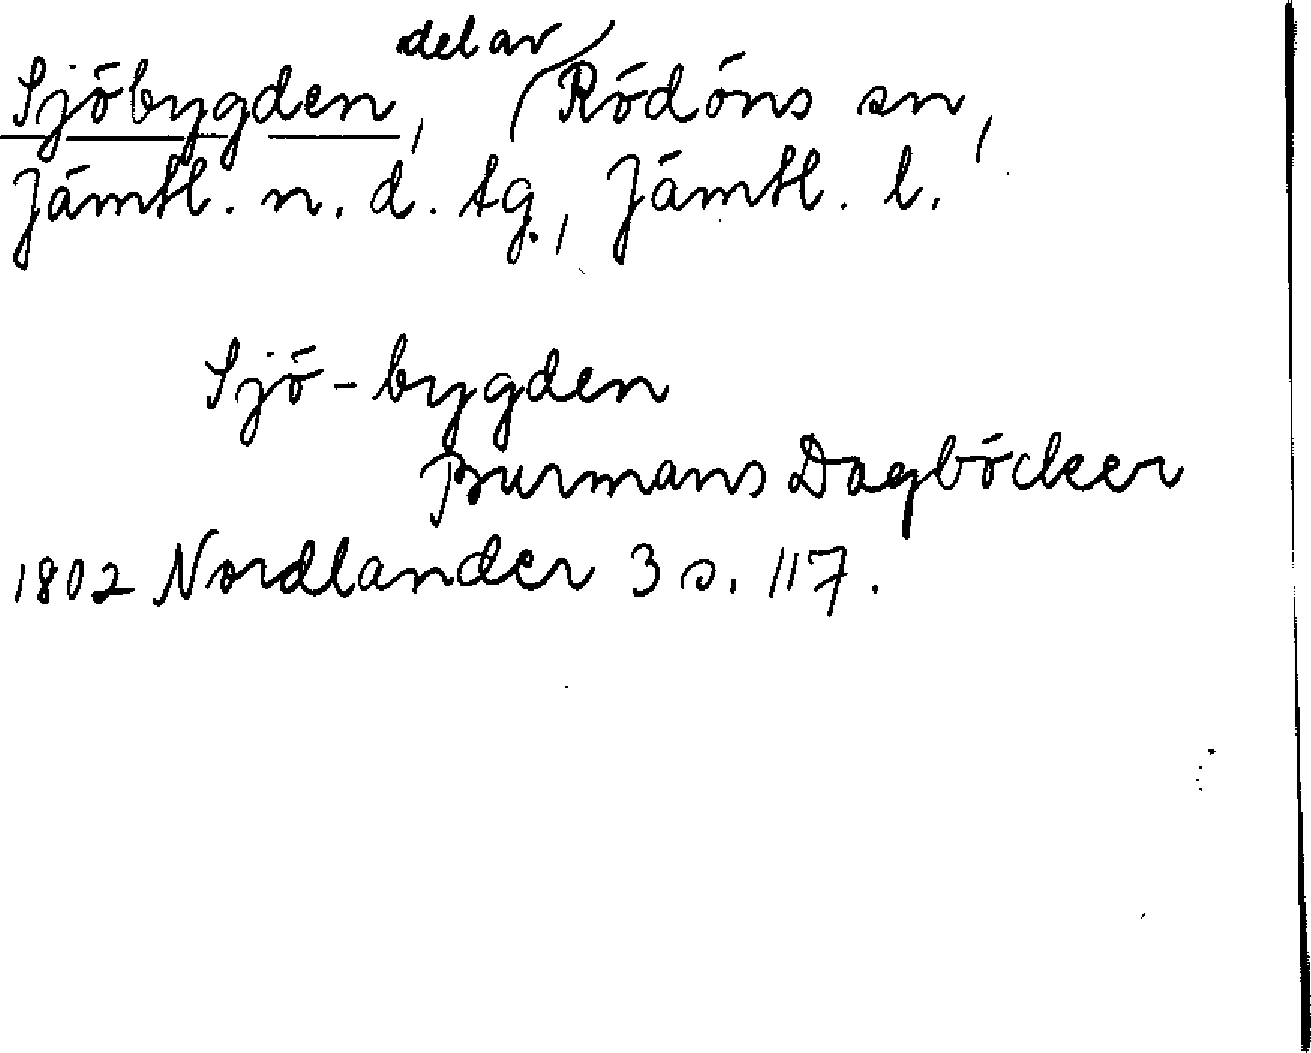 Sjöbygden, del av Rödöns sn,
Jämtl. n. d. tg., Jämtl. l.
Sjö-bygden
Burmans Dagböcker
1802 Nordlander 3 s. 117.